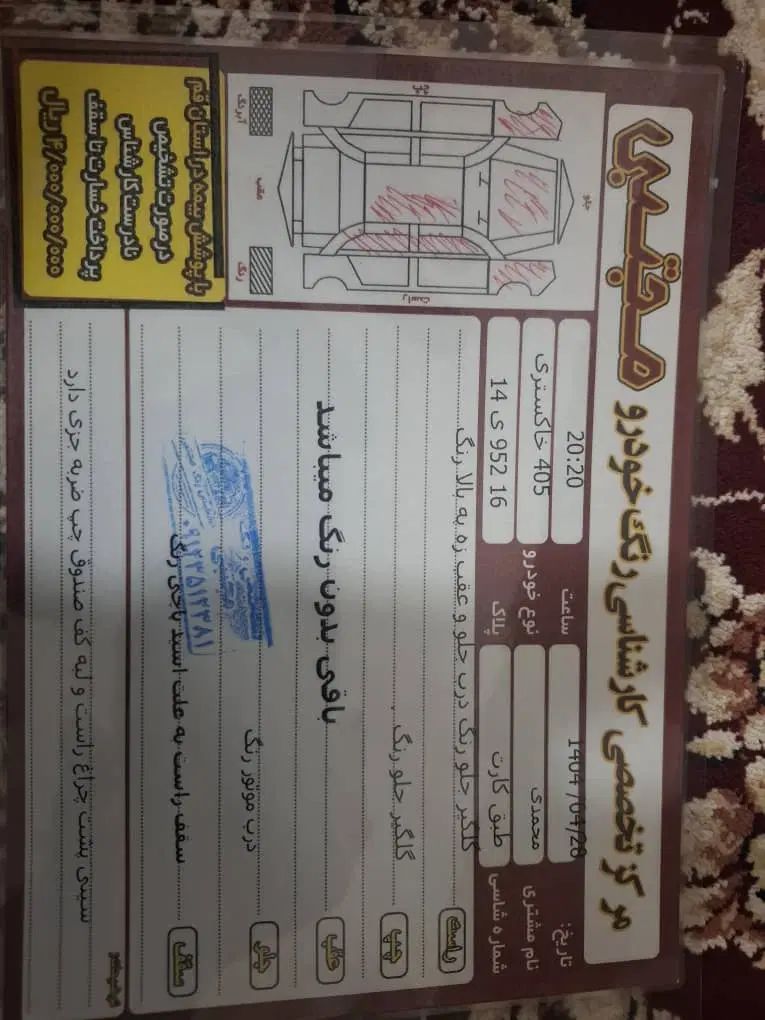 مجتبی
مرکز تخصصی کارشناسی رنگ خودرو
تاریخ: 1404/04/20
ساعت 20:20
نام مشتری محمدی
نوع خودرو 405 خاکستری
شماره شاسی طبق کارت
پلاک 14 ی 952 16
راست گلگیر جلو رنگ درب جلو و عقب زه به بالا رنگ
چپ گلگیر جلو رنگ
عقب باقی بدون رنگ میباشد
جلو درب موتور رنگ
سقف سقف راست به علت اسید پاچی رنگ
سینی پشت چراغ راست و لبه کف صندوق چپ ضربه جزی دارد
جلو
چپ
راست
عقب
آبرنگ
رنگ
با پوشش بیمه در استان قم
در صورت تشخیص
نادرست کارشناس
پرداخت خسارت تا سقف
۴/۰۰۰/۰۰۰/۰۰۰ ریال